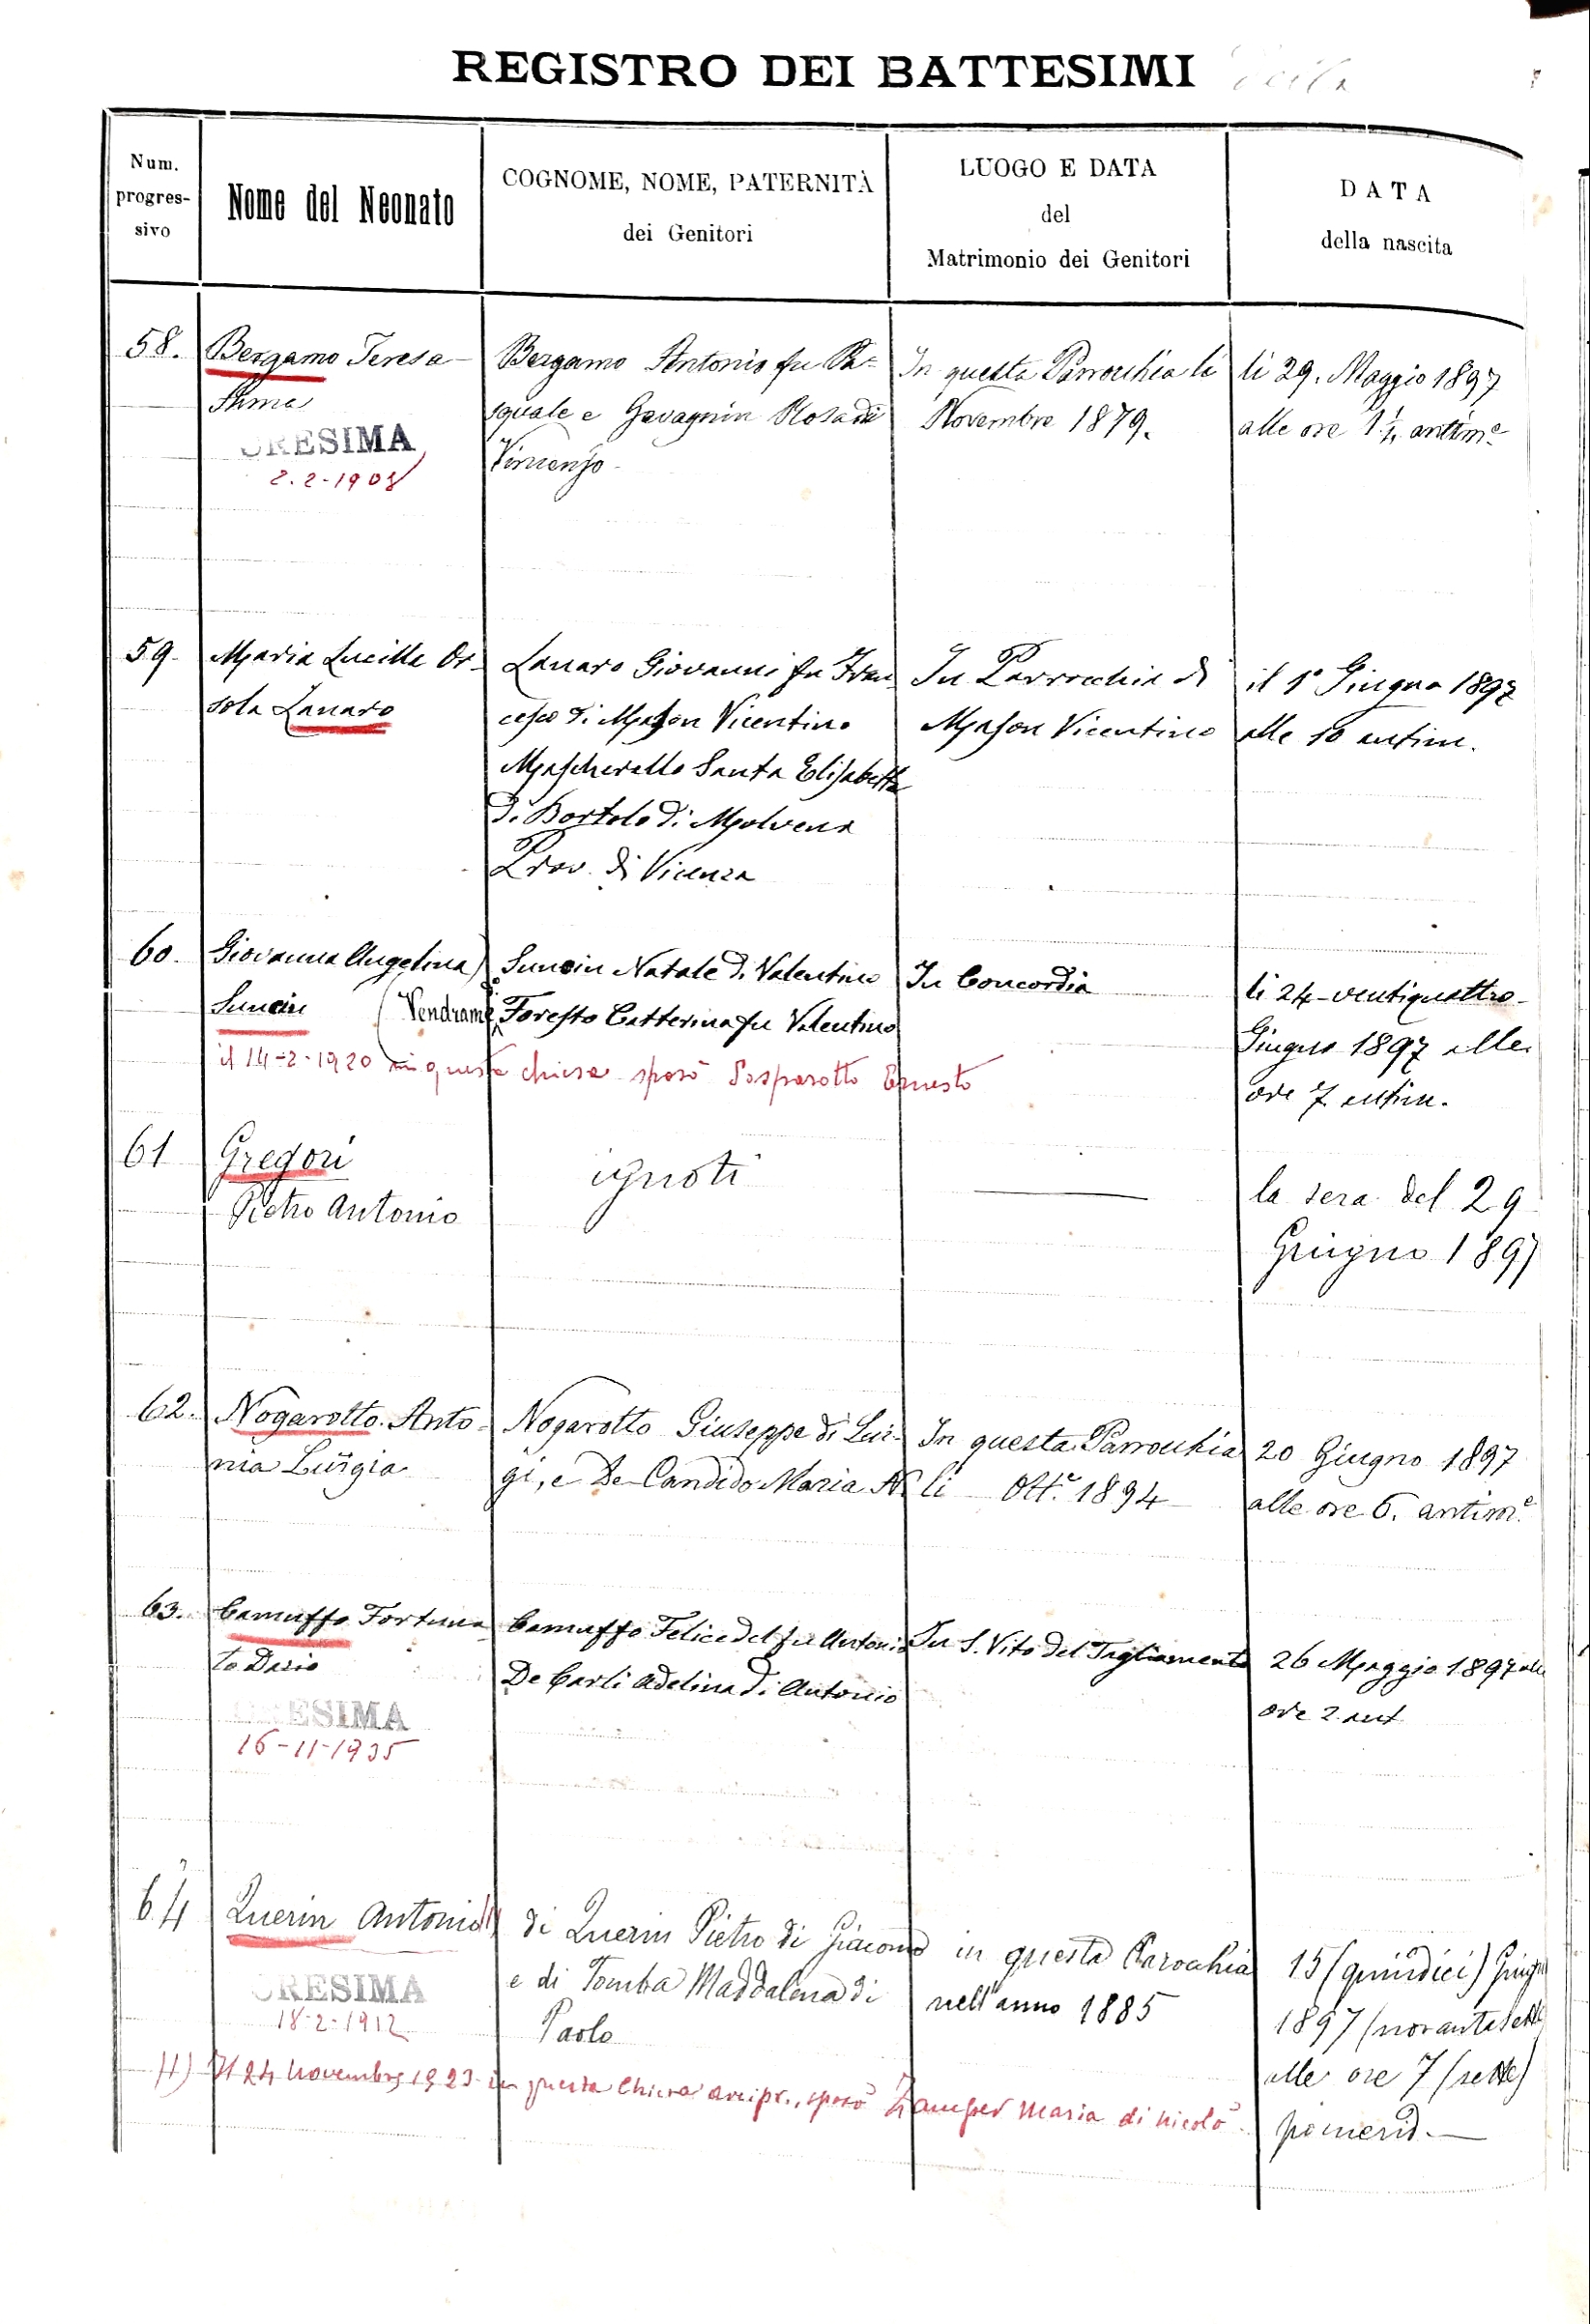 REGISTRO DEI BATTESIMI
Num.
progres-
sivo
Nome del Neonato
COGNOME, NOME, PATERNITÀ
dei Genitori
LUOGO E DATA
del
Matrimonio dei Genitori
DATA
della nascita
58.
Bergamo Teresa
CRESIMA
2.2-1908
Bergamo Antonio fu Pa=
squale e Gavagnin Rosa di
Vincenzo
In questa Parrocchia li
Novembre 1879.
li 29. Maggio 1897
alle ore antime
59.
Maria Lucilla Or-
sola Lanaro
Lanaro Giovanni fu Fran
cesco di Mason Vicentino
Mascherello Santa Elisabetta
di Bortolo di Molvena
Prov. di Vicenza
In Parrocchia di
Mason Vicentino
il 1° Giugno 1897
alle 10 antim.
60.
Giovanna Angelina
Suncin
(Vendrame
Suncin Natale di Valentino
Foresto Catterina fu Valentino
In Concordia
li 24-ventiquattro-
Giugno 1897 alle
ore 7 antim.
il 14-2-1920 in questa chiesa sposò Pasparotto Ernesto
61
Gregori
Pietro Antonio
ignoti
la sera del 29
Giugno 1897
62.
Nogarotto Anto-
nia Luigia
Nogarotto Giuseppe di Lui-
gi, e De Candido Maria N
In questa Parrocchia
li Ott.e 1894
20 Giugno 1897
alle ore 6. antim.e
63.
Camuffo Fortuna
to Dario
CRESIMA
16-11-1935
Camuffo Felice del fu Antonio
De Carli Adelina di Antonio
In S. Vito del Tagliamento
26 Maggio 1897 alle
ore 2 ant
64
Querin Antonio
CRESIMA
18-2-1912
di Querin Pietro di Giacomo
e di Tomba Maddalena di
Paolo
in questa Parocchia
nell'anno 1885
15 (quindici) Giugno
1897 (novantasette
alle ore 7 (sette)
pomerid.
Il 24 Novembre 1923 in questa Chiesa arcipr., sposò Zamper Maria di Nicolò